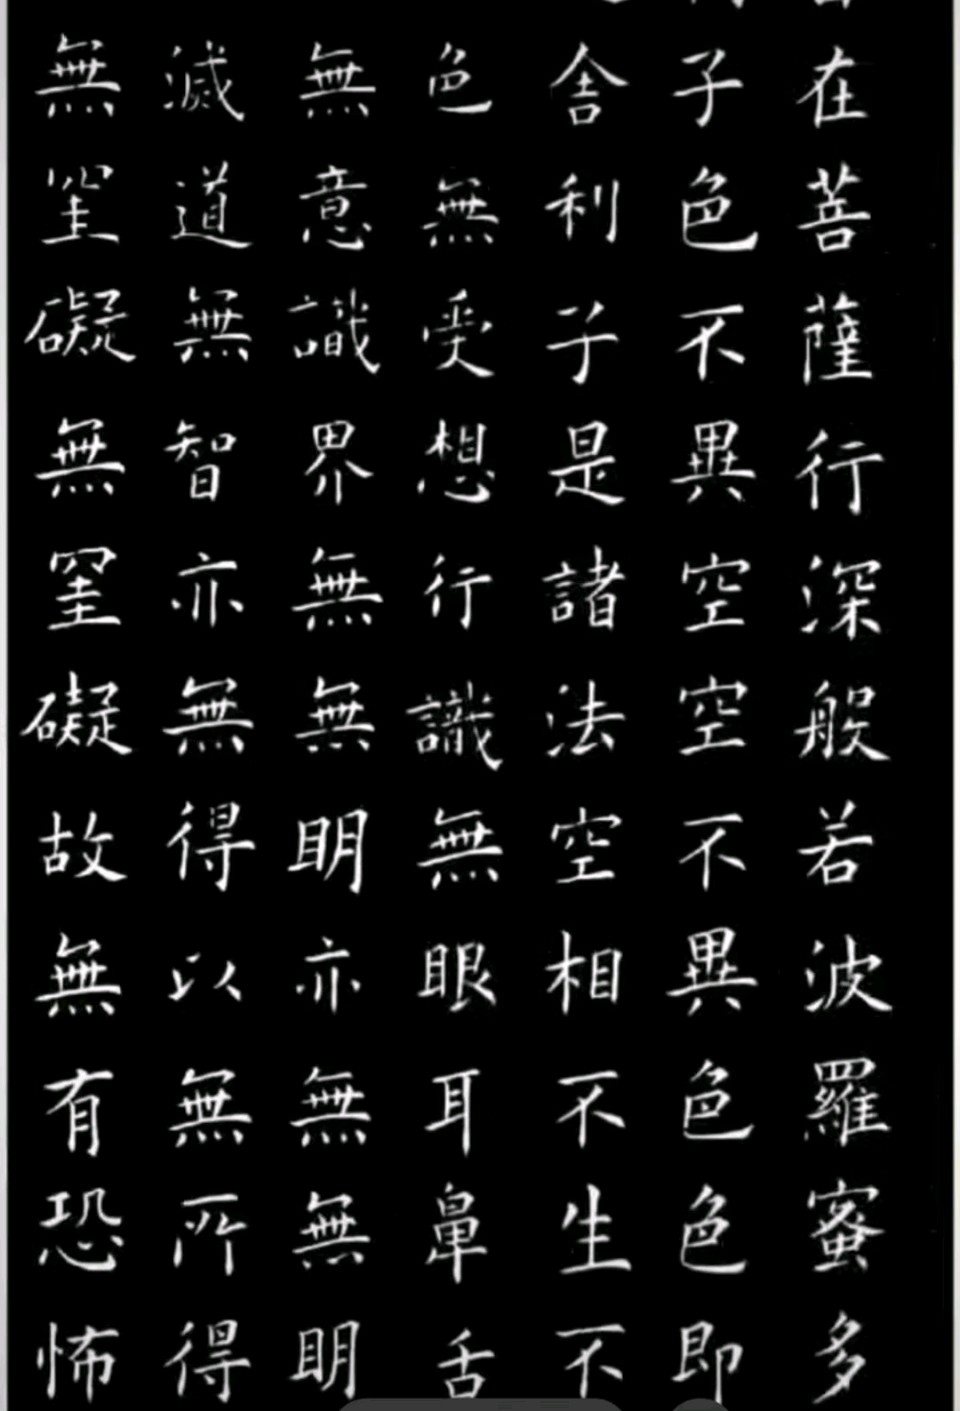 在菩薩行深般若波羅蜜多
子色不異空空不異色色即
舍利子是諸法空相不生不
色無受想行識無眼耳鼻舌
無意識界無無明亦無無明
滅道無智亦無得以無所得
無罣礙無罣礙故無有恐怖